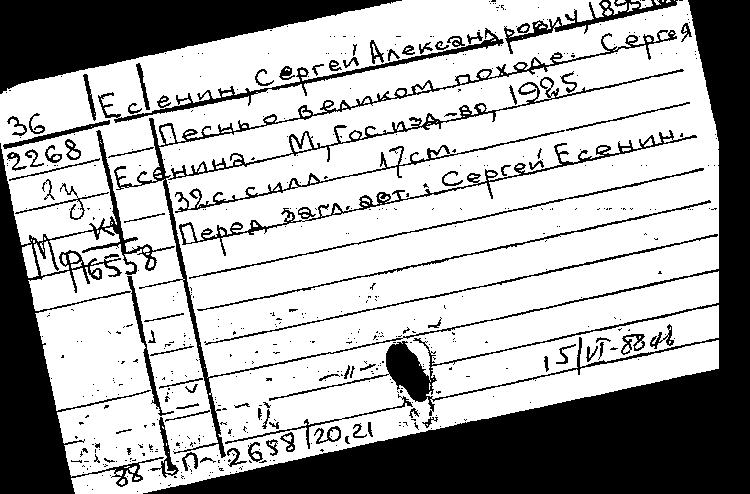 Есенин, Сергей Александрович, 1895-
36
2268
Песнь о великом походе. Сергея
Есенина. М., Гос.изд-во, 1925.
32.с. с илл. 17см.
Перед загл. авт.: Сергей Есенин.
2ц
Мф
16558
-"-
15/VI-88
88-ВП-2688/20,21